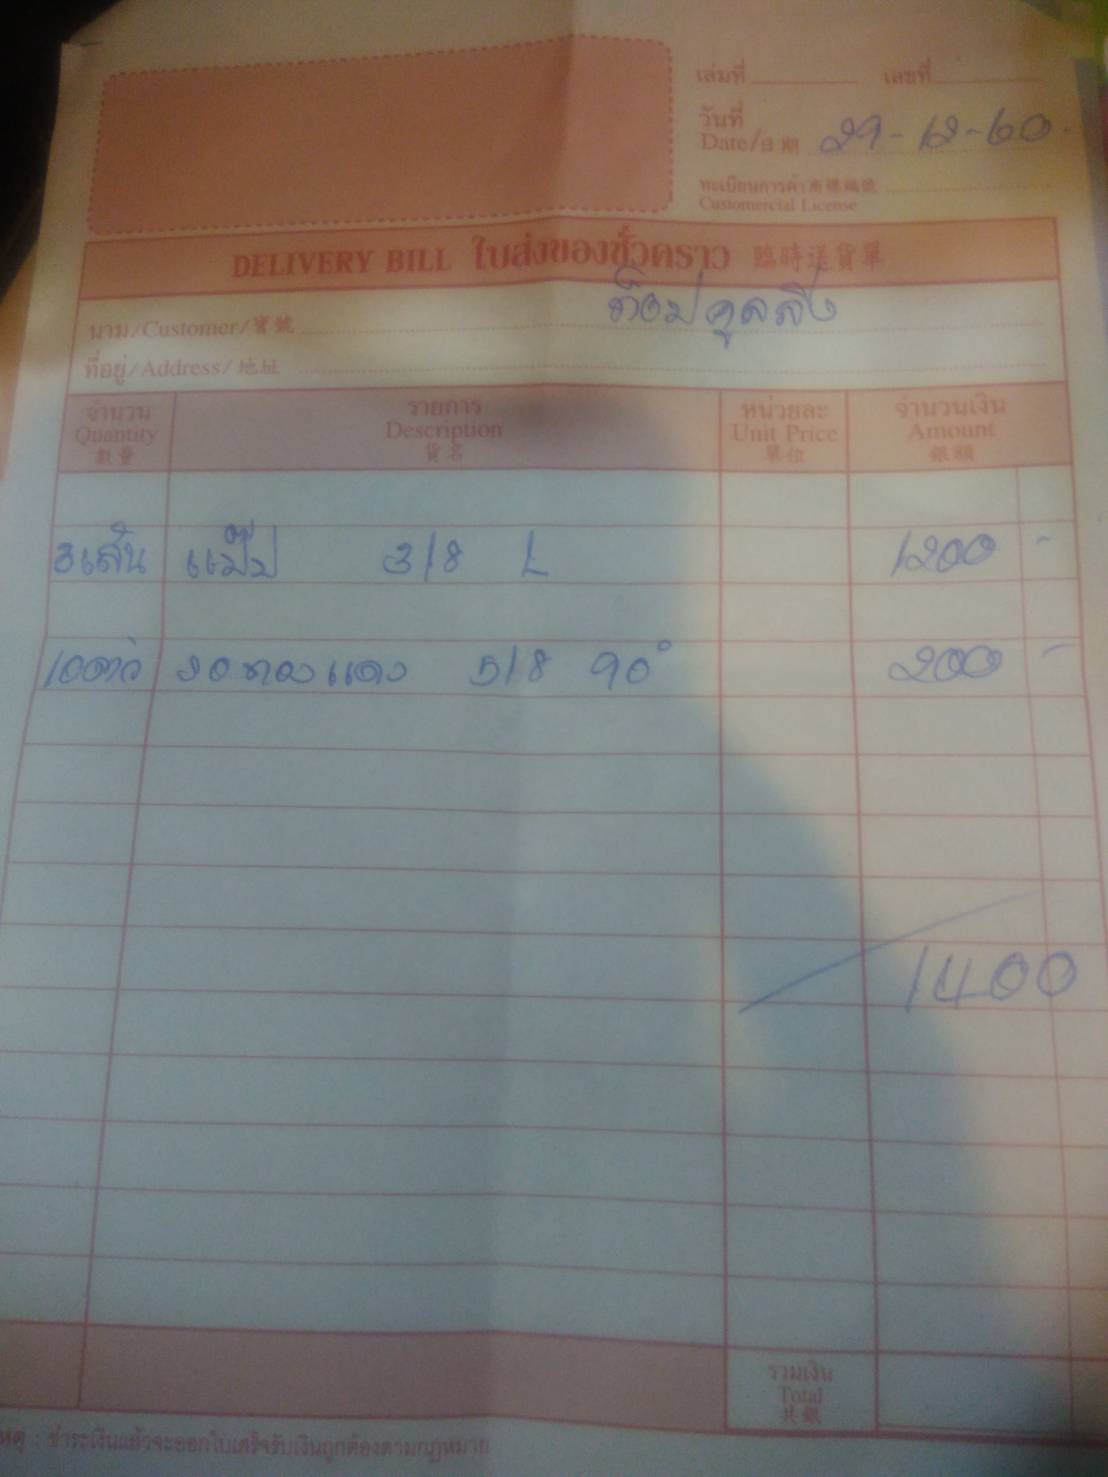 เล่มที่ เลขที่
วันที่
Date/日期 29-12-60
ทะเบียนการค้า/商標編號
Customercial License
DELIVERY BILL ใบส่งของชั่วคราว 臨時送貨單
นาม/Customer/寶號 ท็อปคูลลิ่ง
ที่อยู่/Address/地址
จำนวน รายการ หน่วยละ จำนวนเงิน
Quantity Description Unit Price Amount
數量 貨名 單位 銀額
3เส้น แป๊ป 3/8 L 1200 -
10ตัว งอทองแดง 5/8 90° 200 -
1400
รวมเงิน
Total
共銀
เหตุ : ชำระเงินแล้วจะออกใบเสร็จรับเงินถูกต้องตามกฎหมาย